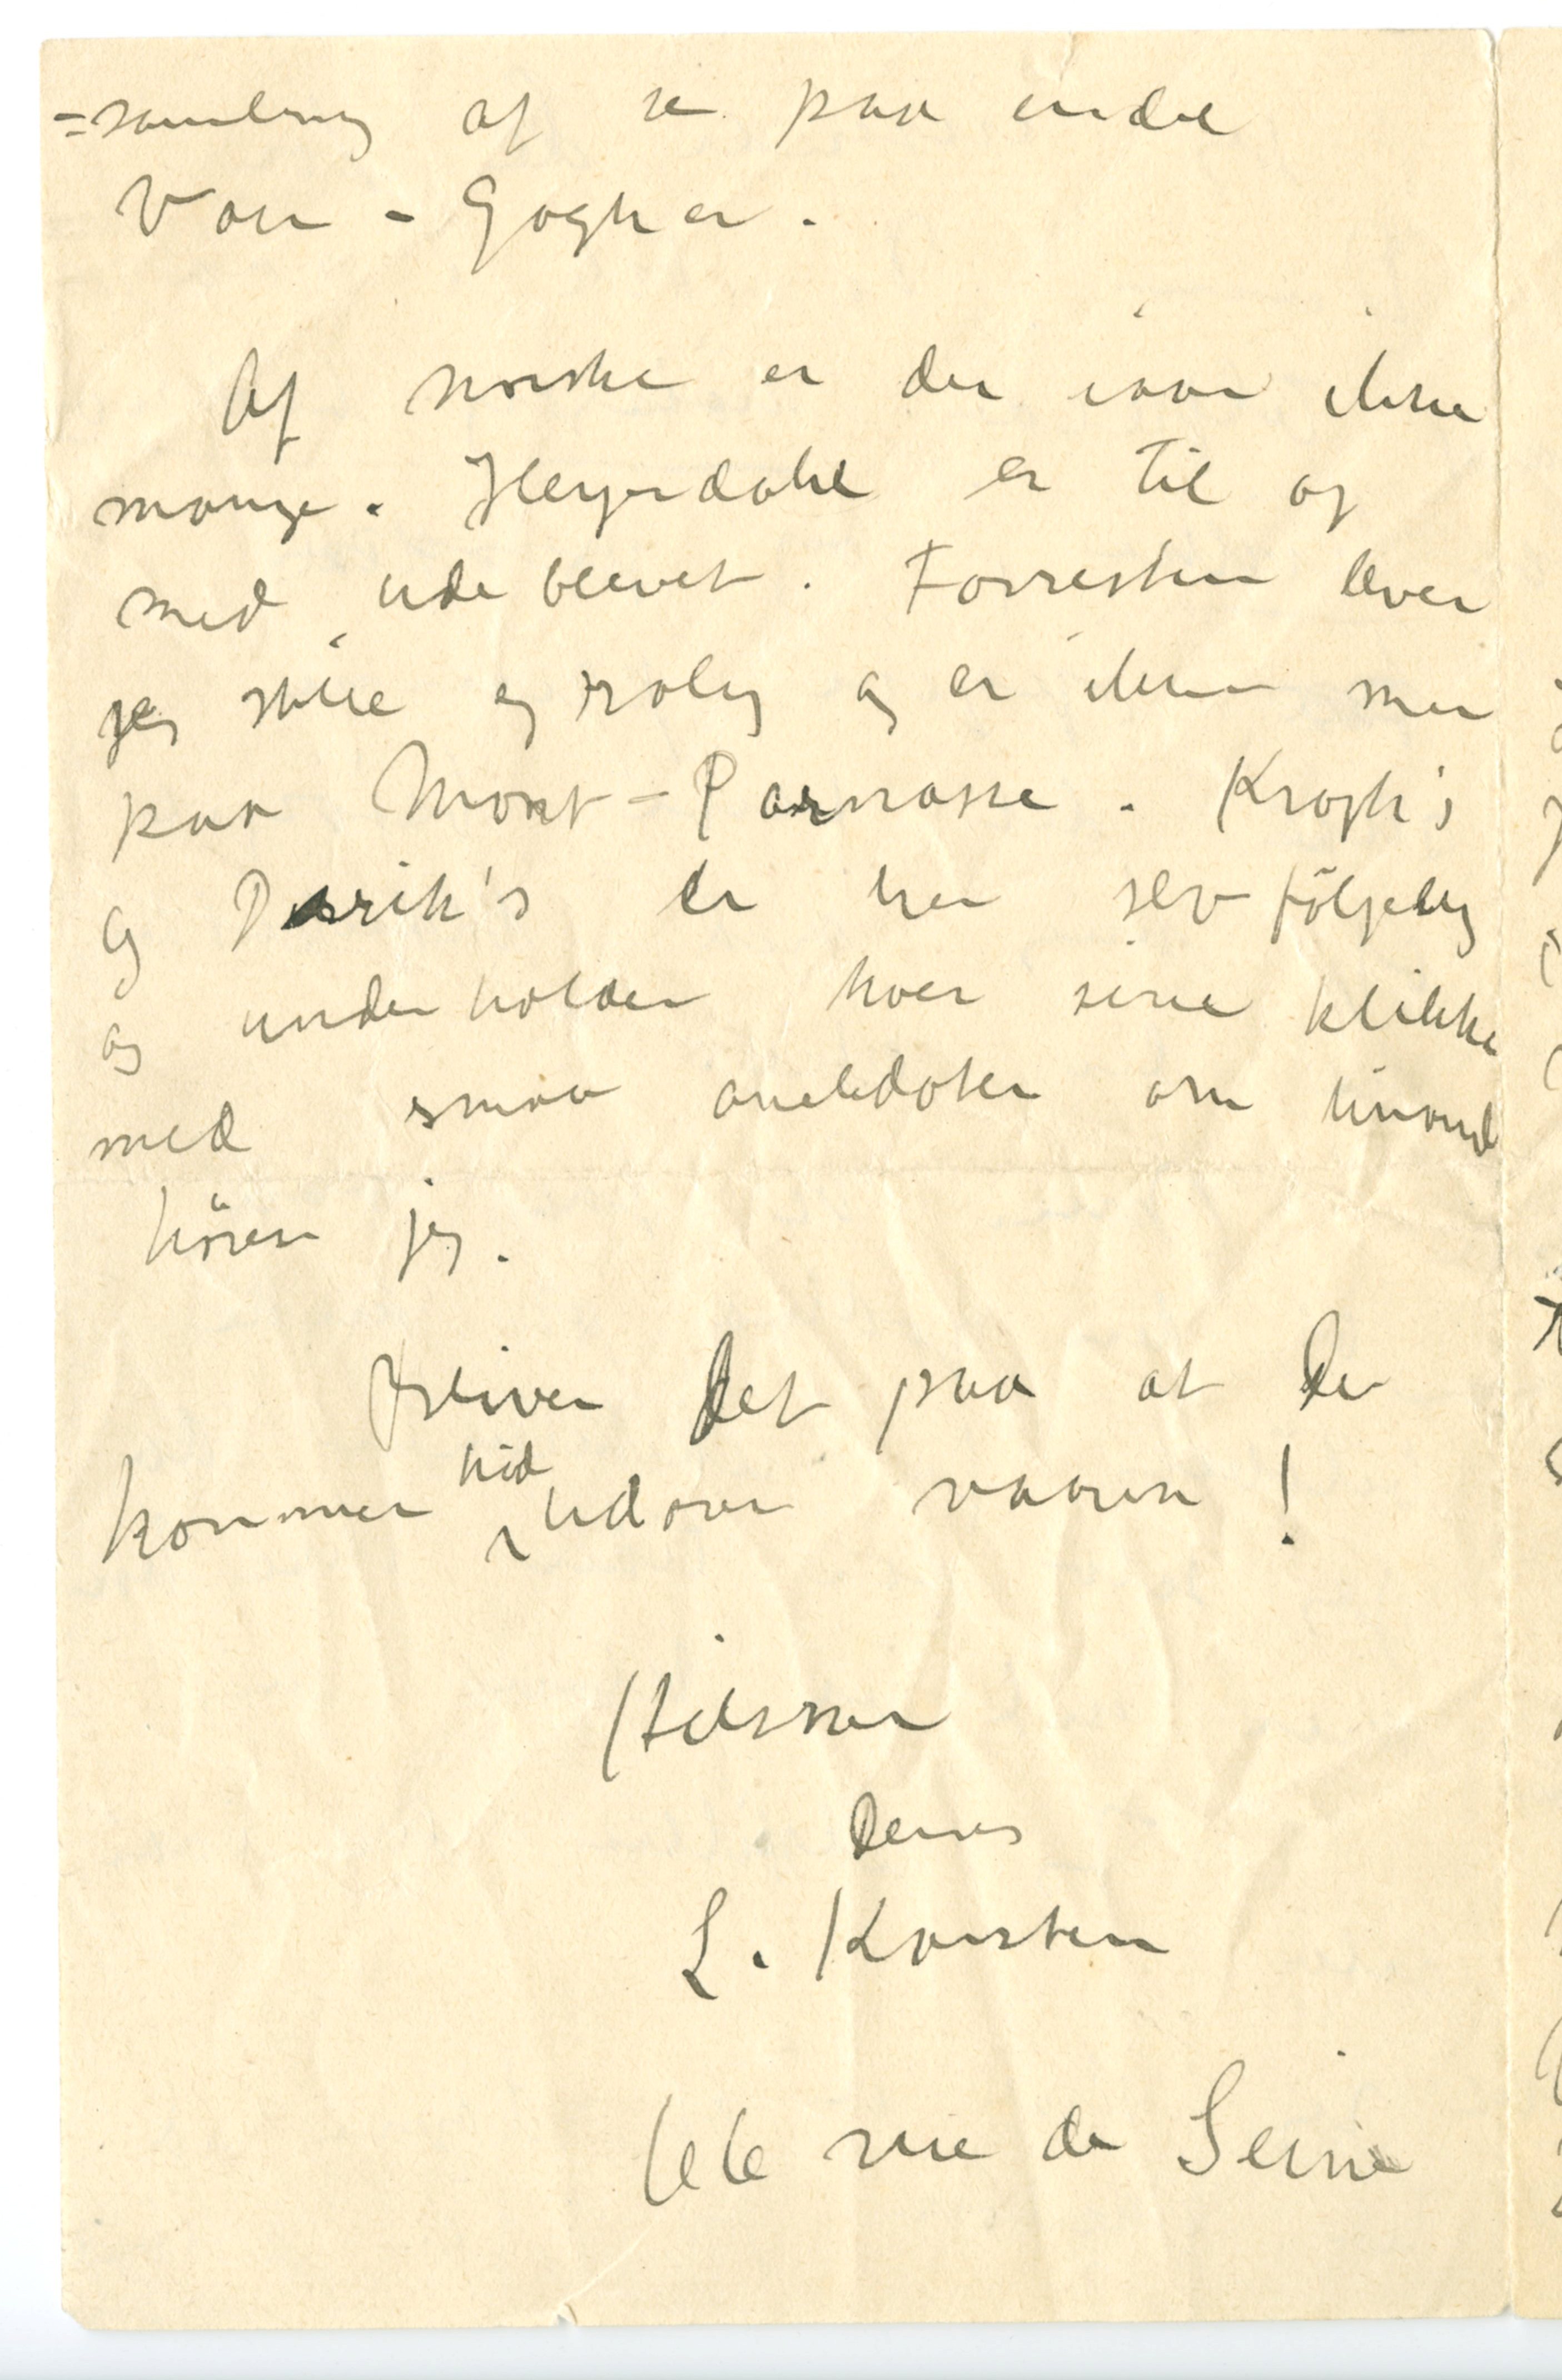 =samling af se paa endel
Van-Gogher.
Af norske er der iaar ikke
mange. Heyerdahl er til og
med udeblevet. Forresten lever
jeg stille og rolig og er ikke mer
paa Mont-Parnasse. Krogh's
og Diurik's er her selvfölgelig
og underholder hver sine klikke
med smaa anekdoter om hinand
hörer jeg.
Driver det paa at De
kommer hid udover vaaren!
Hilsen
Deres
L. Karsten
66 rue de Seine